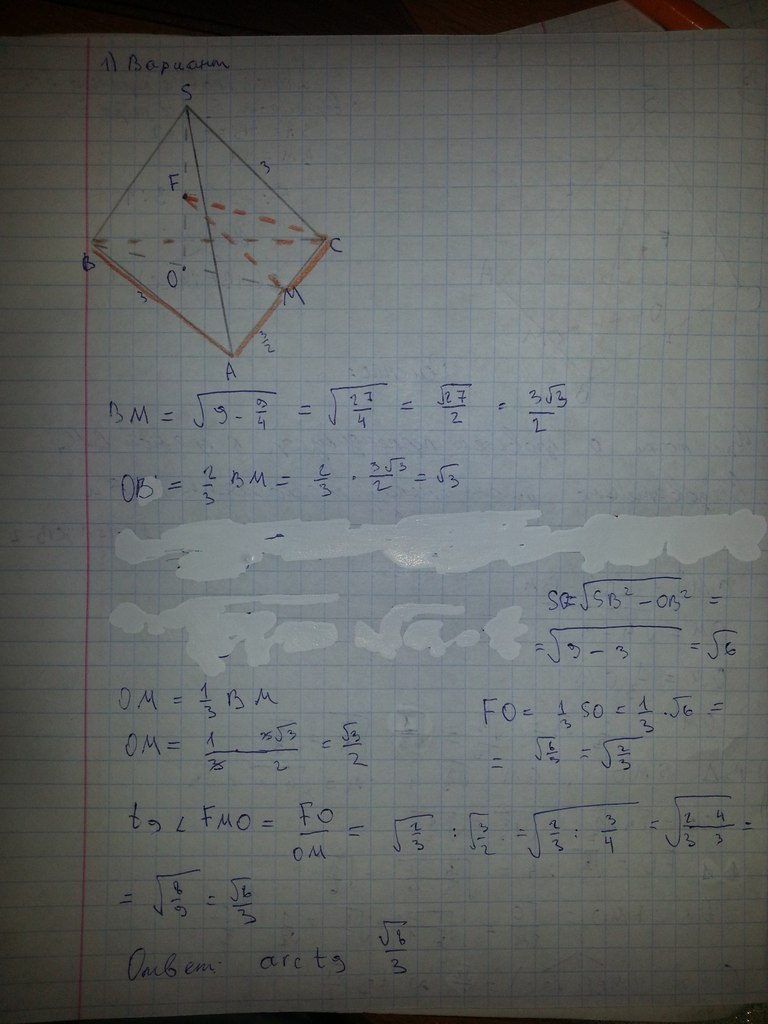 1) Вариант
S
F
3
B
C
O
M
3
3/2
A
BM = √(9 - 9/4) = √(27/4) = √27/2 = 3√3/2
OB = 2/3 BM = 2/3 · 3√3/2 = √3
SO = √(SB² - OB²) =
= √(9 - 3) = √6
OM = 1/3 BM
OM = 1/3 · 3√3/2 = √3/2
FO = 1/3 SO = 1/3 · √6 =
= √6/3 = √(2/3)
tg < FMO = FO/OM = √(2/3) : √3/2 = √(2/3 : 3/4) = √(2/3 · 4/3) =
= √(8/9) = √8/3
Ответ: arctg √8/3